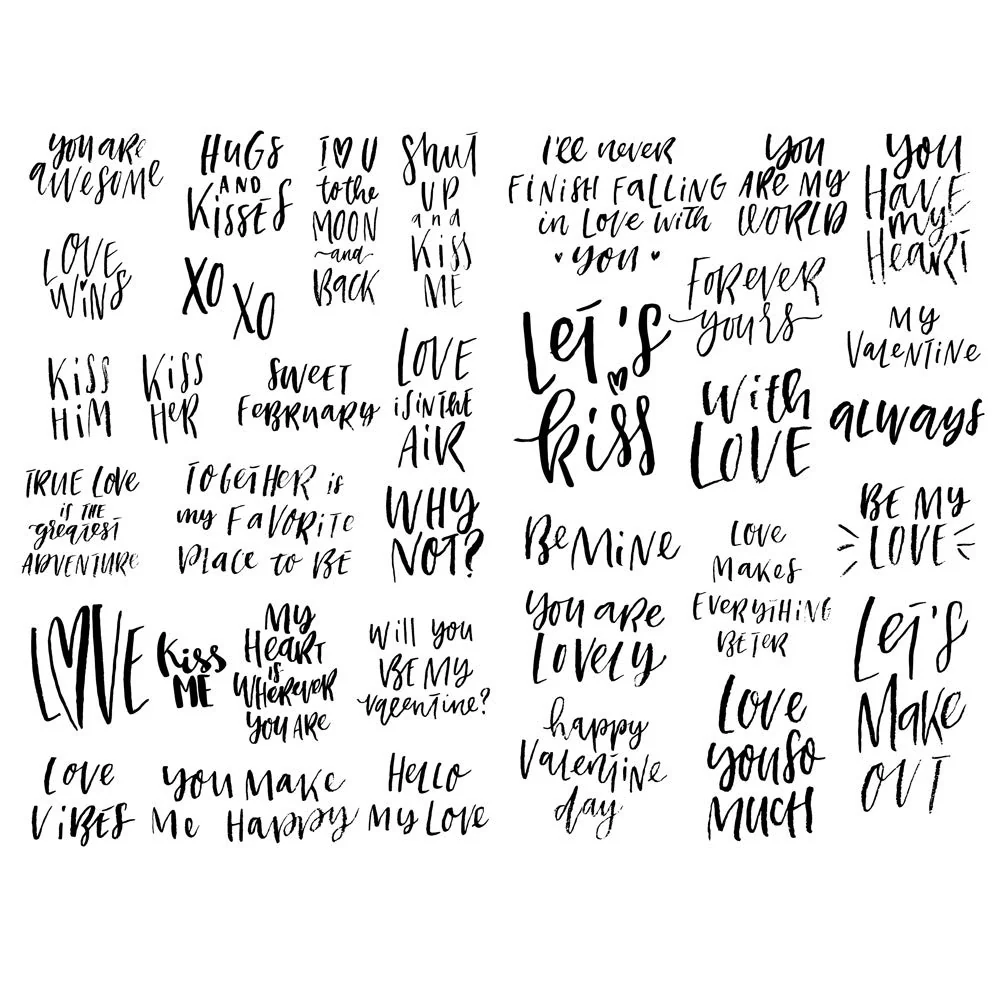 You are
awesome
HUGS
AND
KISSES
I ♥ U
to the
MOON
~and~
BACK
Shut
UP
and
Kiss
ME
LOVE
WiNS
XO
XO
KISS
HiM
KISS
HER
SWEET
FEBRUARY
LOVE
iS iN tHE
AiR
TRUE LOVE
is THE
greatest
ADVENTURE
TOGETHER is
my FAVORiTE
Place to BE
WHY
NOT?
LOVE
Kiss
ME
MY
HEART
is
WHEREVER
YOU ARE
Will you
BE MY
valentine?
Love
ViBES
YOU MAKE
Me HAPPY
HELLO
MY LOVE
I'll never
FINISH FALLING
in Love with
♥ you ♥
You
ARE MY
WORLD
You
HAVE
my
HeaRT
FOREVER
yours
MY
VALENTINE
Let's
kiss
With
LOVE
always
BE MY
LOVE
Be MiNe
Love
Makes
EVERYTHING
BETER
You are
LOVELY
Let's
Make
OUT
happy
Valentine
day
Love
you so
MUCH